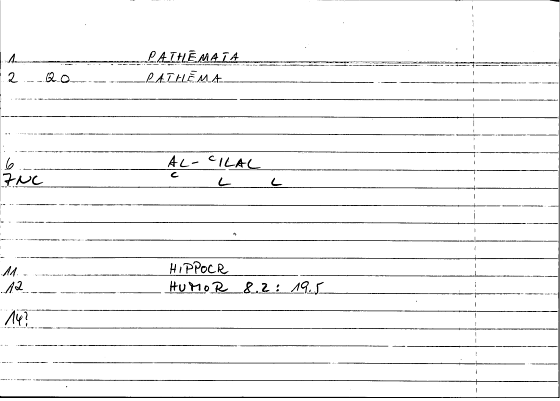 1 PATHĒMATA
2 QO PATHĒMA
6 AL-ᶜILAL
7NC ᶜ L L
11 HIPPOCR
12 HUMOR 8.2: 19.5
14?